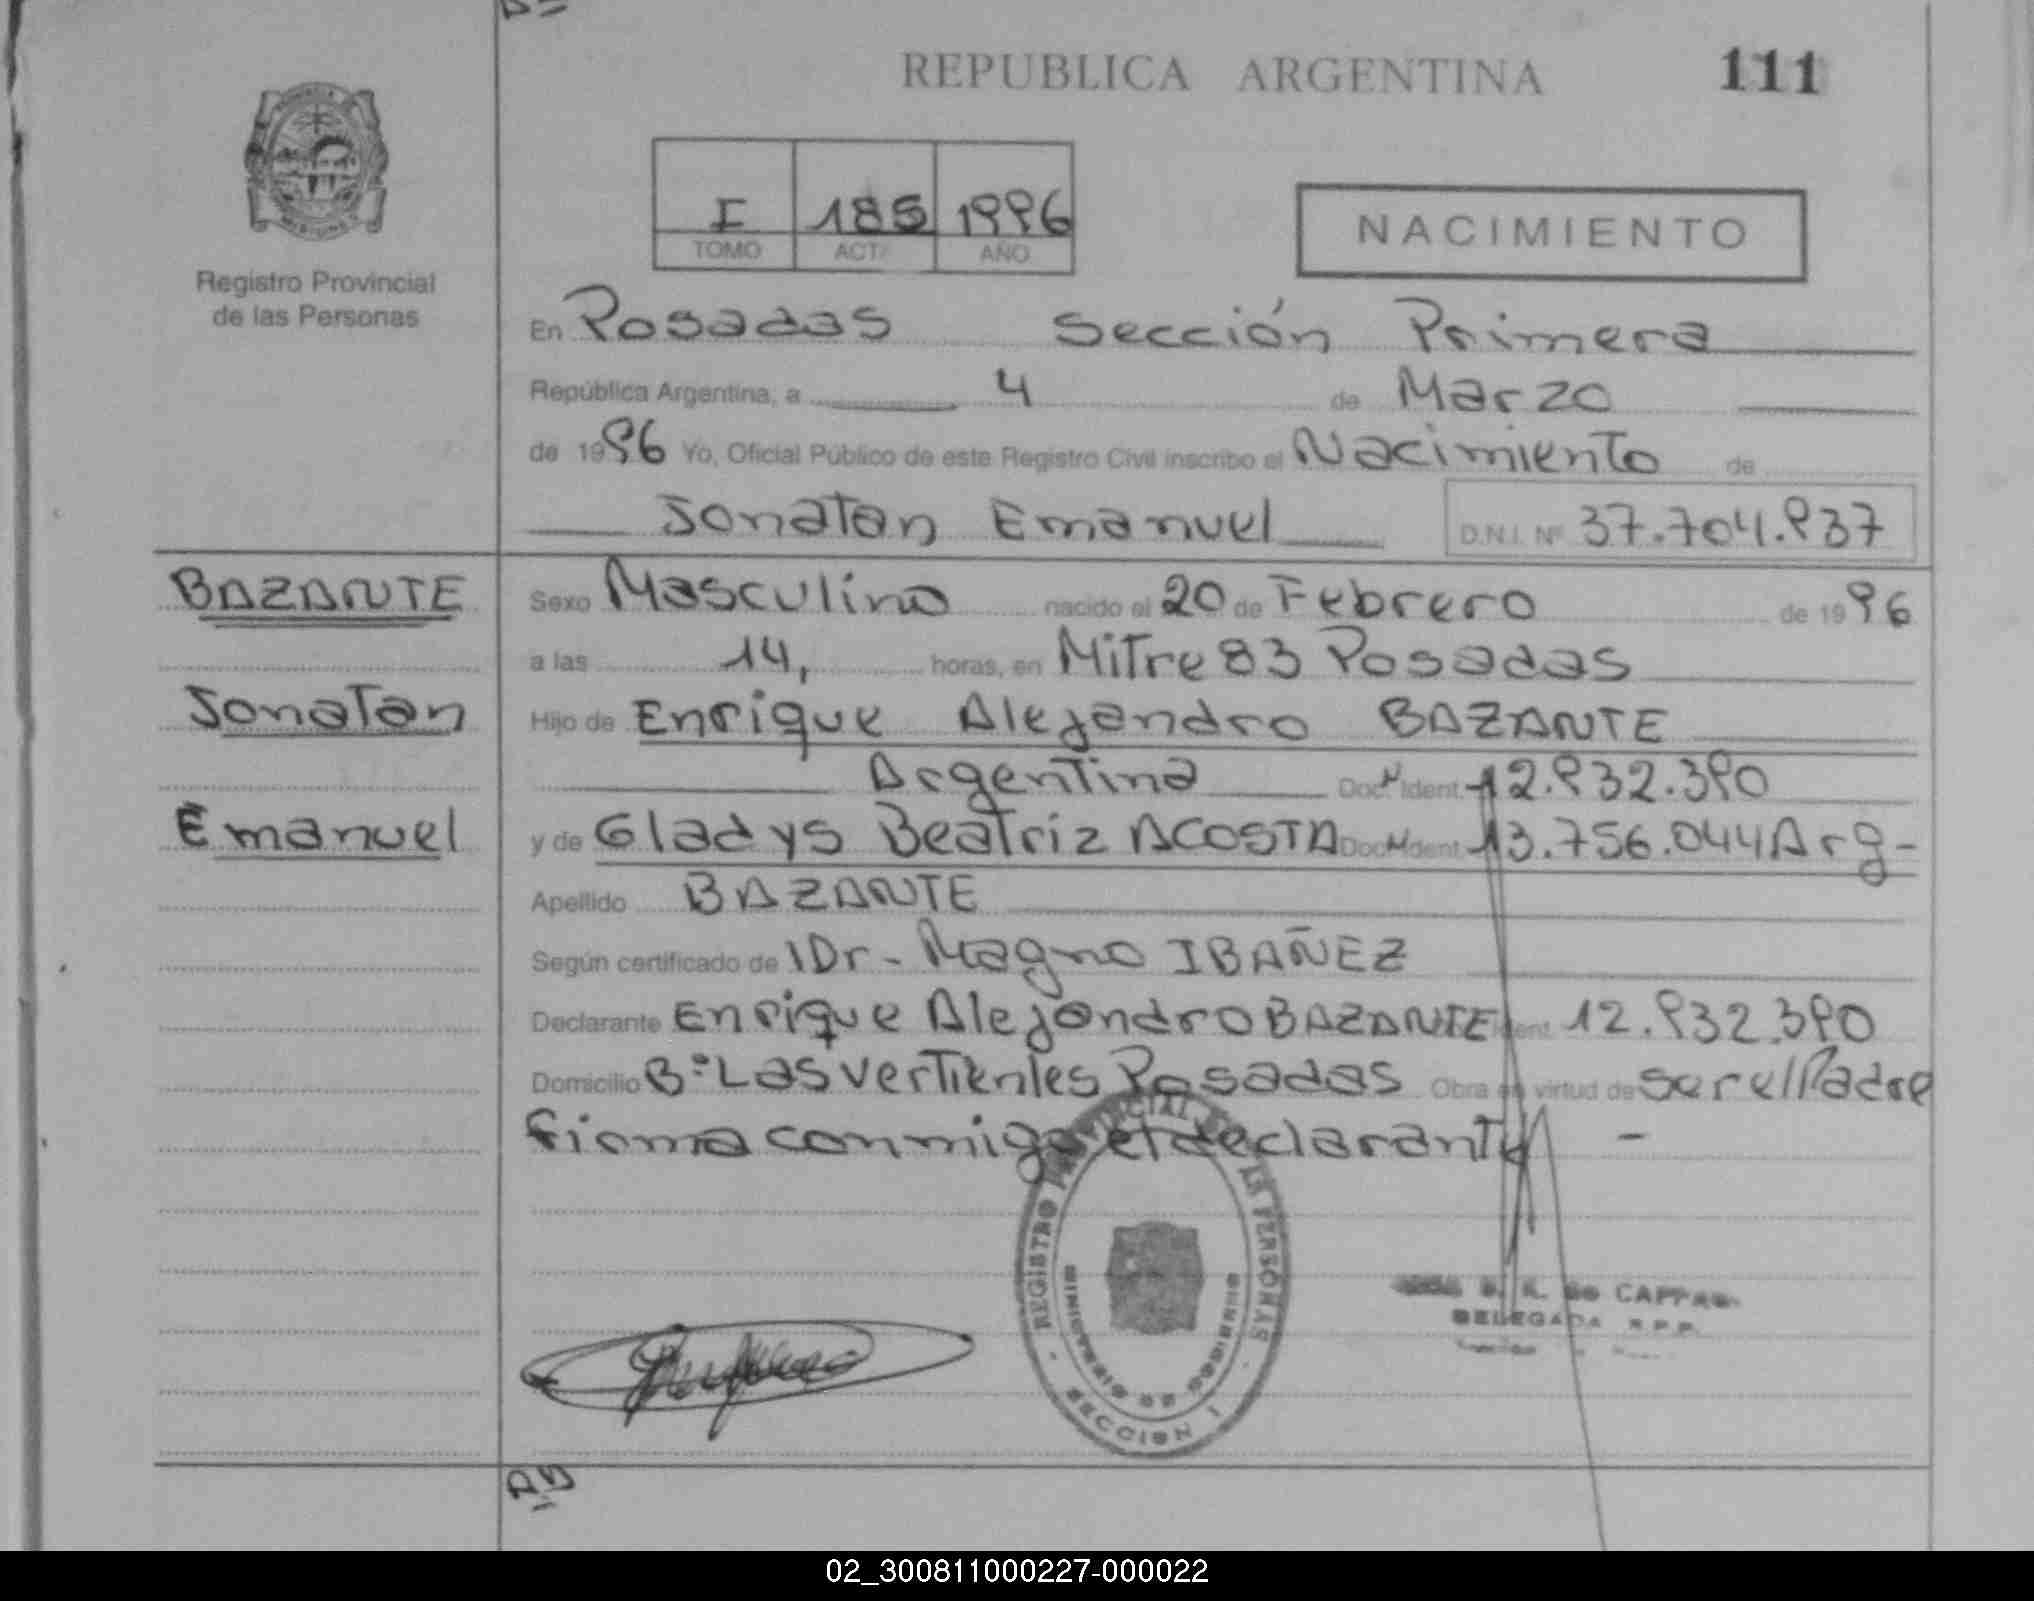 REPUBLICA ARGENTINA 111
Registro Provincial
de las Personas
I 185 1996
TOMO ACTA AÑO
NACIMIENTO
En Posadas Sección Primera
República Argentina, a 4 de Marzo
de 1996 Yo, Oficial Público de este Registro Civil inscribo el Nacimiento de
Jonatan Emanuel D.N.I. Nº 37.704.937
BAZANTE
Jonatan
Emanuel
Sexo Masculino nacido el 20 de Febrero de 1996
a las 14, horas, en Mitre 83 Posadas
Hijo de Enrique Alejandro BAZANTE
Argentina Doc. N Ident. 12.932.390
y de Gladys Beatriz ACOSTA Doc. N Ident. 13.756.044 Arg-
Apellido BAZANTE
Según certificado de Dr- Magno IBAÑEZ
Declarante Enrique Alejandro BAZANTE Ident. 12.932.390
Domicilio Bº Las Vertientes Posadas Obra en virtud de ser el Padre
firma conmigo el declarante -
REGISTRO PROVINCIAL DE LAS PERSONAS
MINISTERIO DE GOBIERNO
- SECCION I -
DELEGADA R.P.P.
02_300811000227-000022